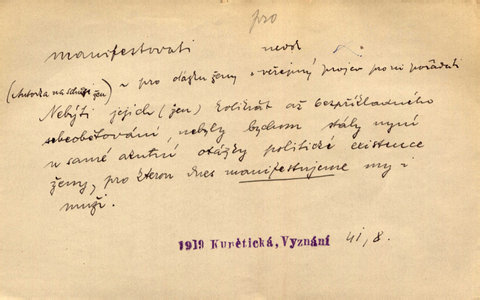 pro
manifestovati neok
(Autorka na schůzi žen) ~ pro otázku ženy a veřejný projev pro ni pořádati
Nebýti jejich (žen) kolikrát až bezpříkladného
sebeobětování, nebyly bychom stály nyní
u samé akutní otázky politické existence
ženy, pro kterou dnes manifestujeme my i
muži.
1919 Kunětická, Vyznání 41, 8.